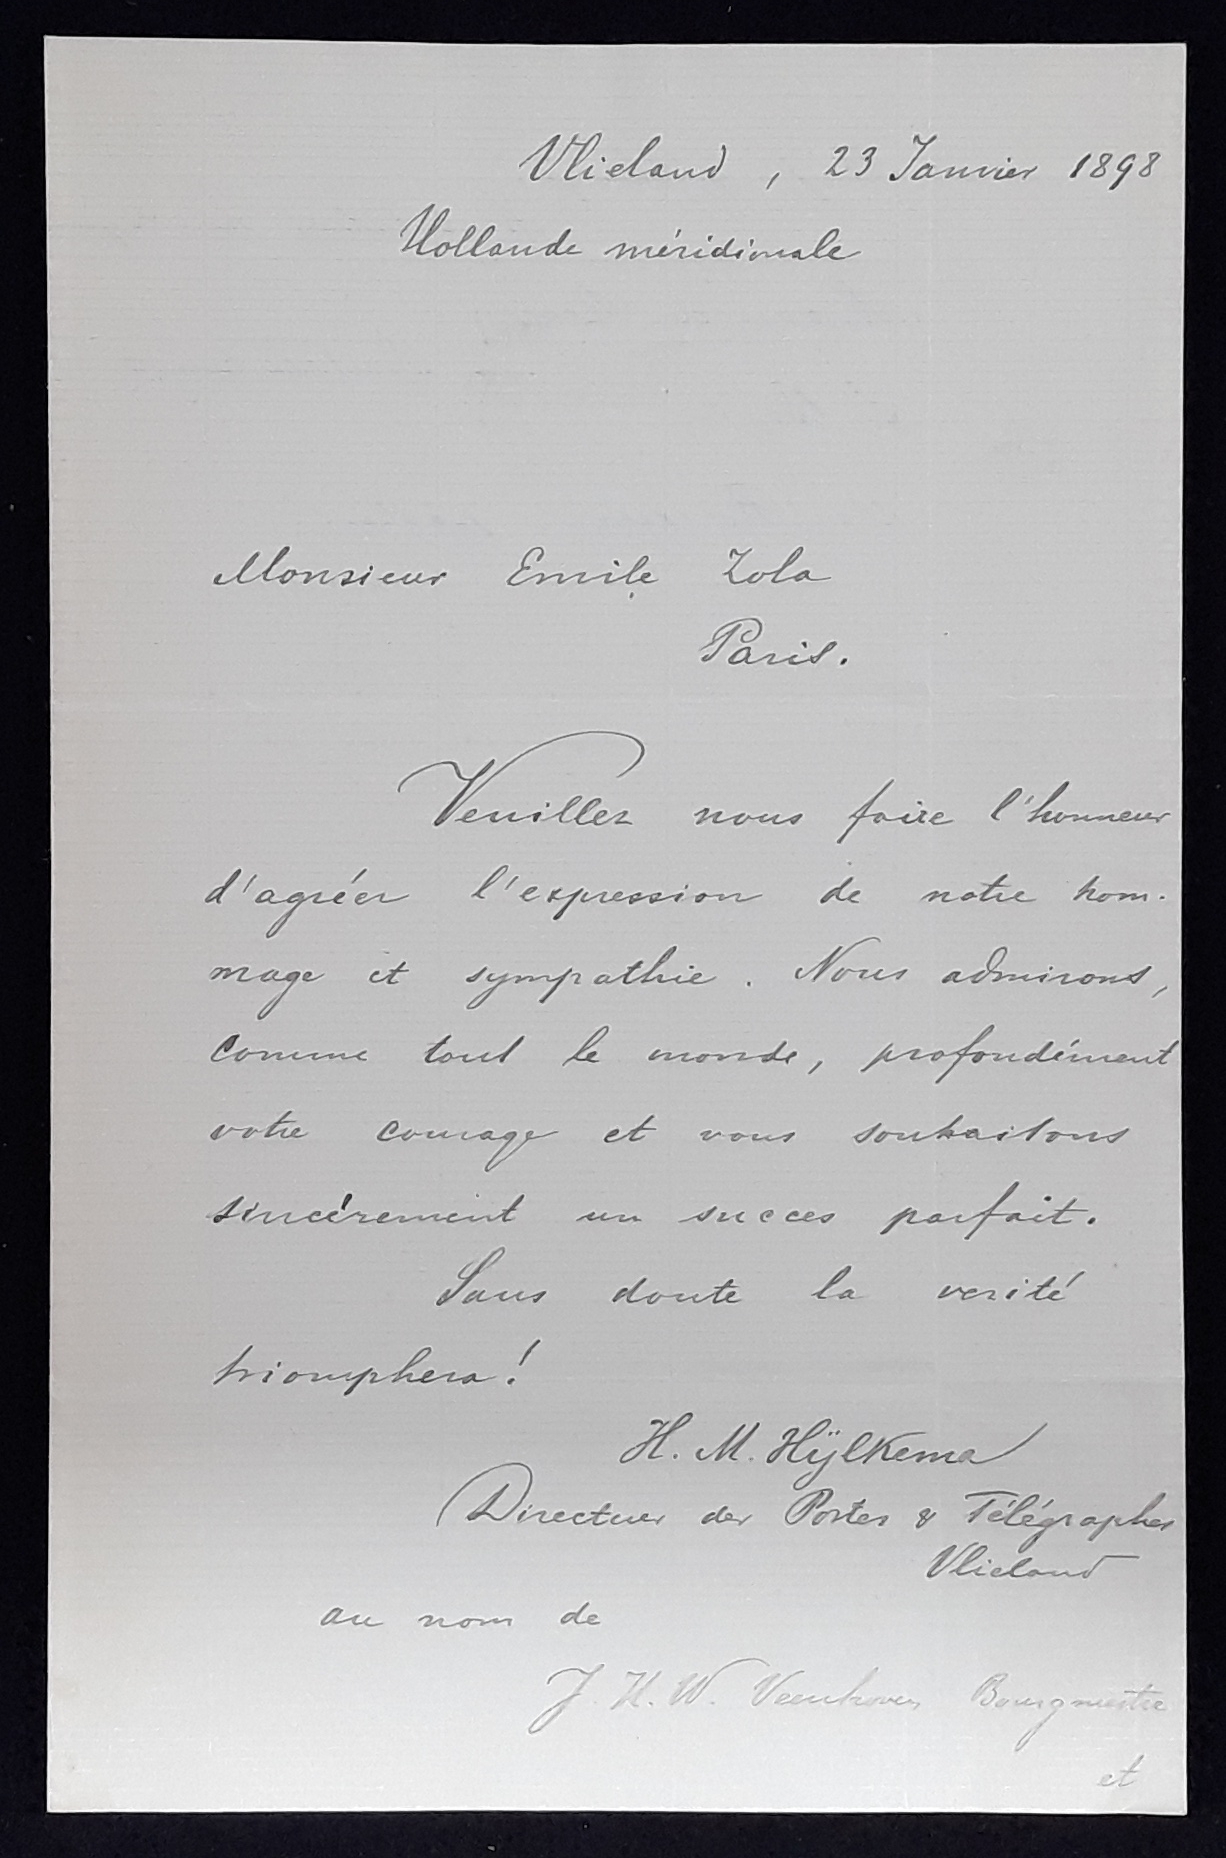 Vlieland, 23 Janvier 1898
Hollande méridionale
Monsieur Emile Zola
Paris.
Veuillez nous faire l'honneur
d'agréer l'expression de notre hom-
mage et sympathie. Nous admirons,
comme tout le monde, profondément
votre courage et vous souhaitons
sincérement un succes parfait.
Sans doute la verité
triomphera!
H. M. Hÿlkema
Directeur des Postes & Télégraphes
Vlieland
au nom de
J. H. W. Veenhoven Bourgmestre
et